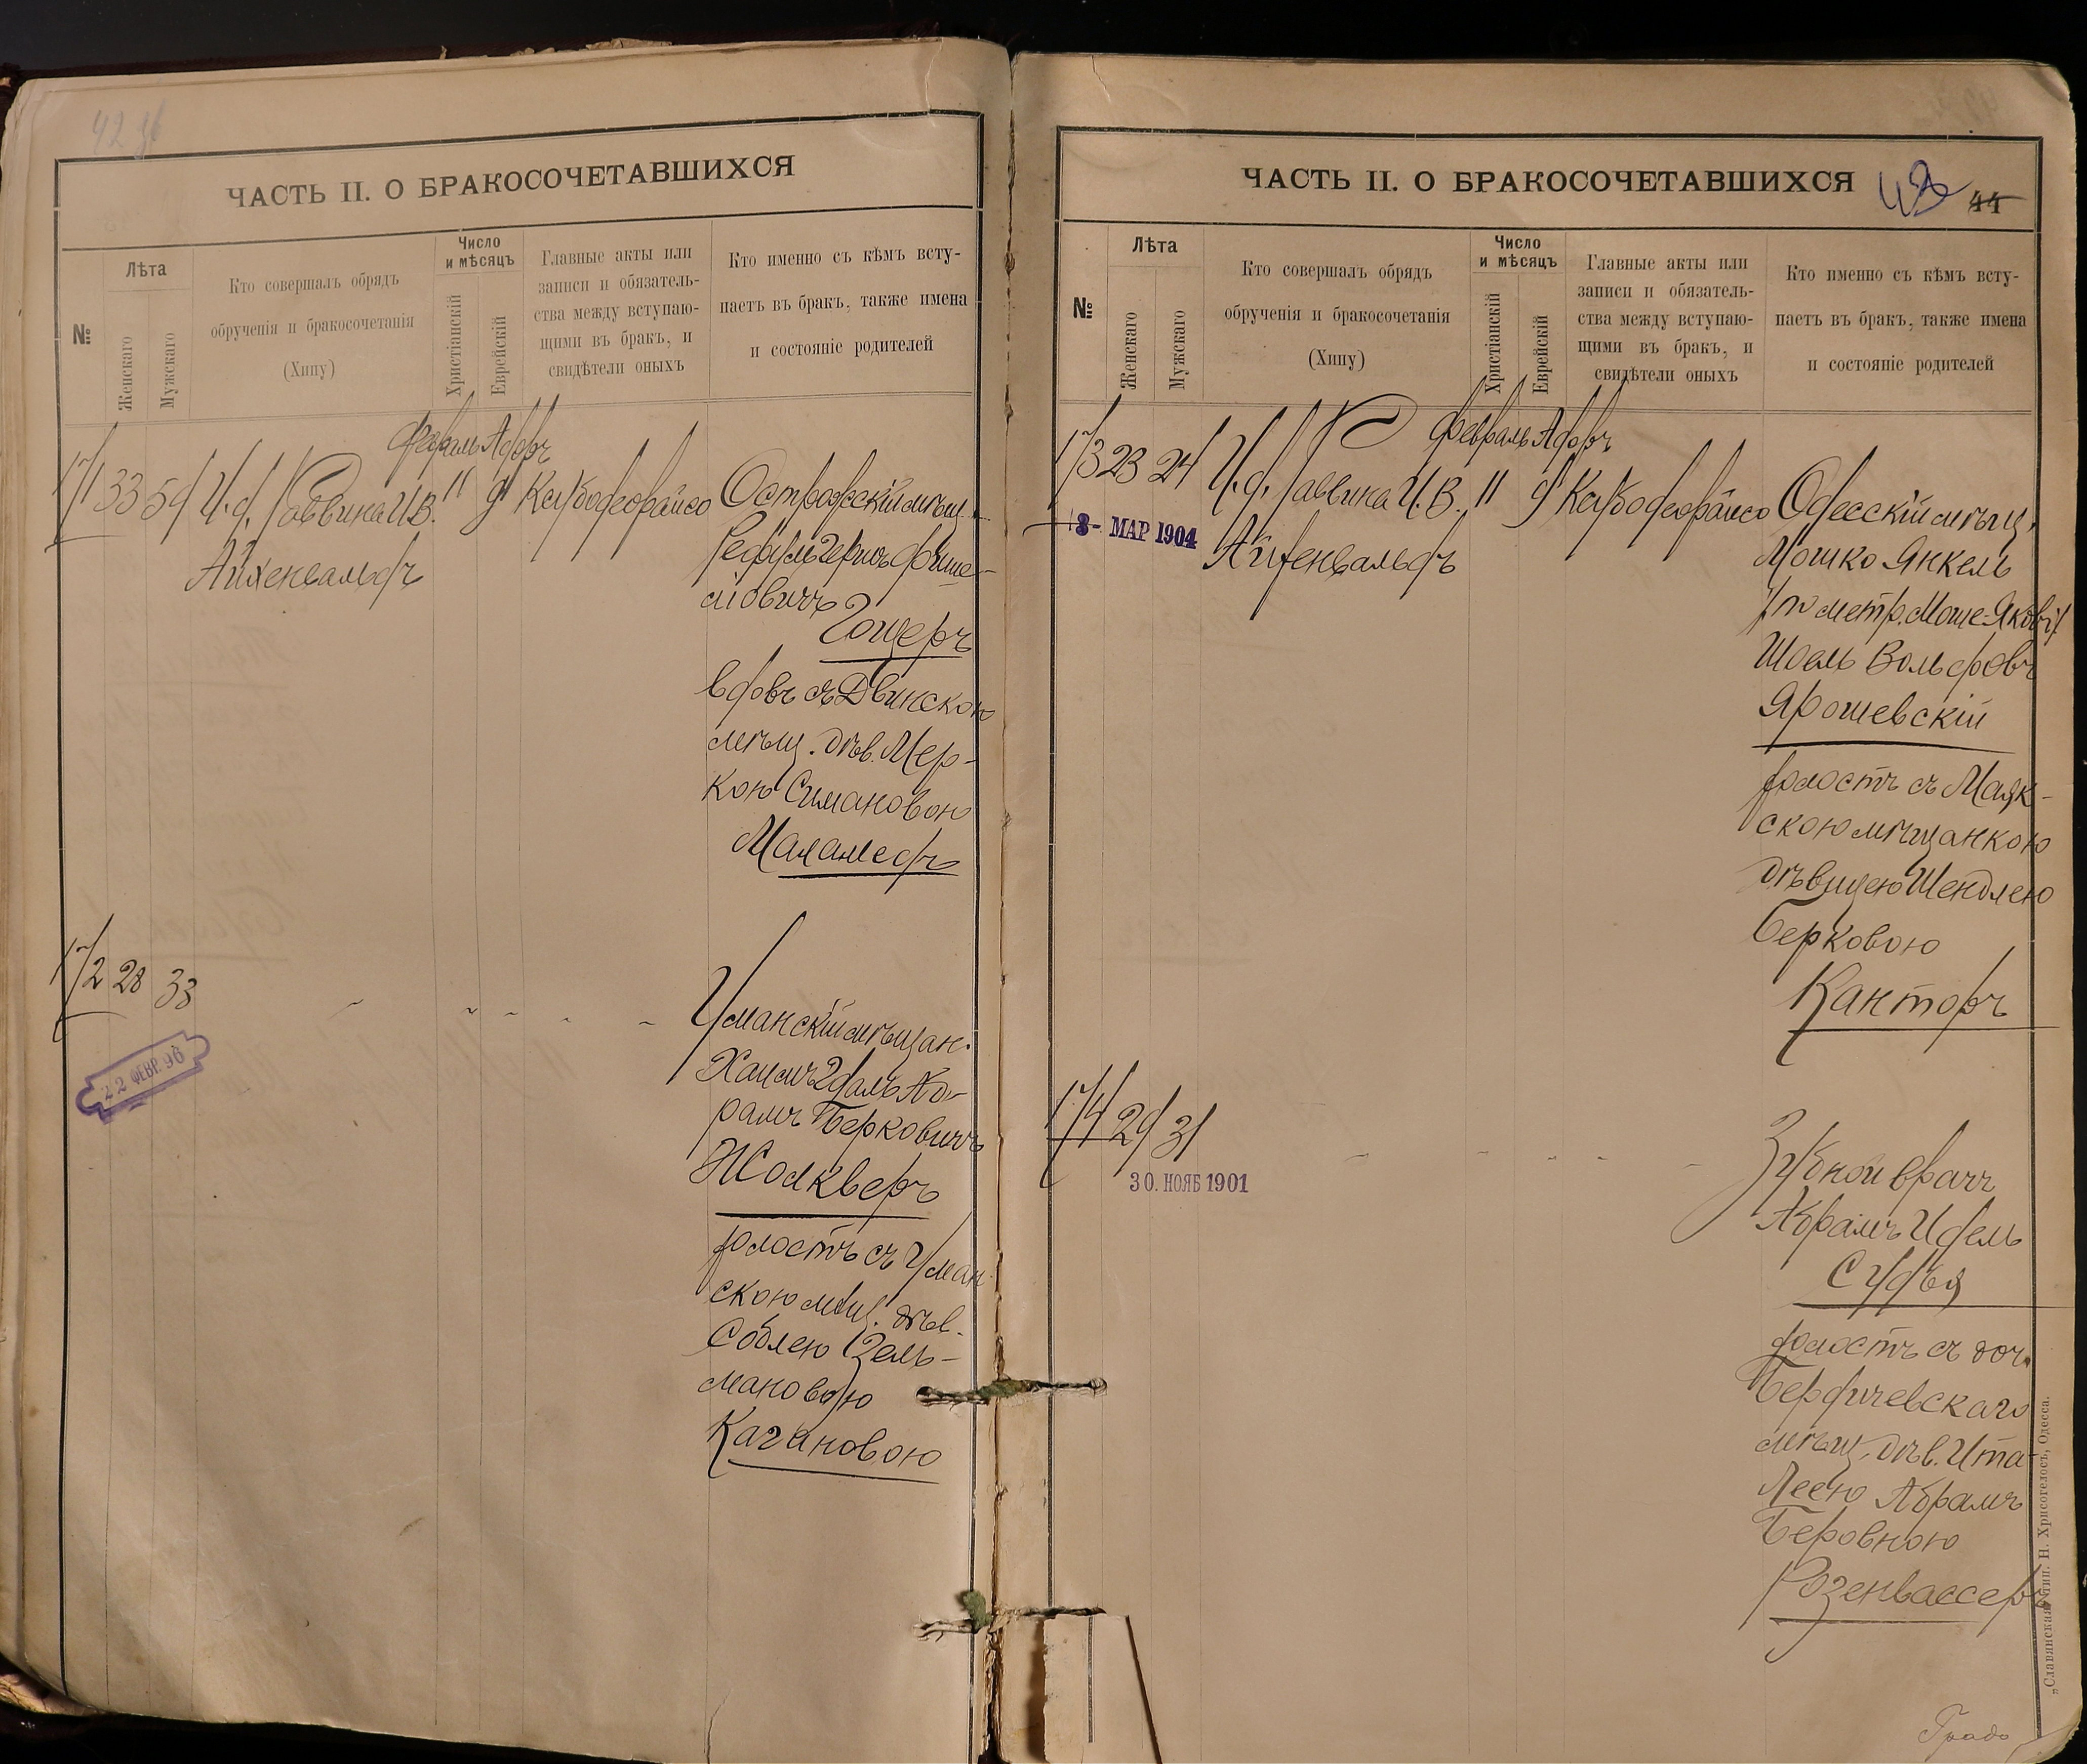 42
ЧАСТЬ II. О БРАКОСОЧЕТАВШИХСЯ
№
Лѣта
Женскаго
Мужскаго
Кто совершалъ обрядъ
обрученія и бракосочетанія
(Хипу)
Число
и мѣсяцъ
Христіанскій
Еврейскій
Главные акты или
записи и обязатель-
ства между вступаю-
щими въ бракъ, и
свидѣтели оныхъ
Кто именно съ кѣмъ всту-
паетъ въ бракъ, также имена
и состояніе родителей
Февраль Адаръ
171 33 59 И.д. Раввина И.В. 11 9
Айхенвальдъ
Острожскій мѣщ.
Гершъ
Гощеръ
вдовъ съ Двинскою
мѣщ. дѣв. Мер-
кою Симановою
Маламедъ
172 28 33
22 ФЕВР. 96
Уманскій мѣщан.
Хаимъ
рамъ Берковичъ
Жолкверъ
холостъ съ Уман
скою мѣщ. дѣв.
Соблею Зель-
мановою
Кагановою
ЧАСТЬ II. О БРАКОСОЧЕТАВШИХСЯ
43 44
№
Лѣта
Женскаго
Мужскаго
Кто совершалъ обрядъ
обрученія и бракосочетанія
(Хипу)
Число
и мѣсяцъ
Христіанскій
Еврейскій
Главные акты или
записи и обязатель-
ства между вступаю-
щими въ бракъ, и
свидѣтели оныхъ
Кто именно съ кѣмъ всту-
паетъ въ бракъ, также имена
и состояніе родителей
Февраль Адаръ
173 23 24 И.д. Раввина И.В. 11 9
8- МАР 1904
Айхенвальдъ
Одесскій мѣщ.
Мошко Янкель
/по метр. Моше-Яковъ/
Шоель Вольфовъ
Ярошевскій
холостъ съ Маяк-
скою мѣщанкою
дѣвицею Шендлею
Берковою
Канторъ
174 29 31
30. НОЯБ 1901
Зубной врачъ
Абрамъ Идель
Судья
холостъ съ доч.
Бердичевскаго
мѣщ. дѣв. Ита-
Леею Абрамъ
Беровною
Розенвассеръ
„Славянская“ тип. Н. Хрисогелосъ, Одесса.